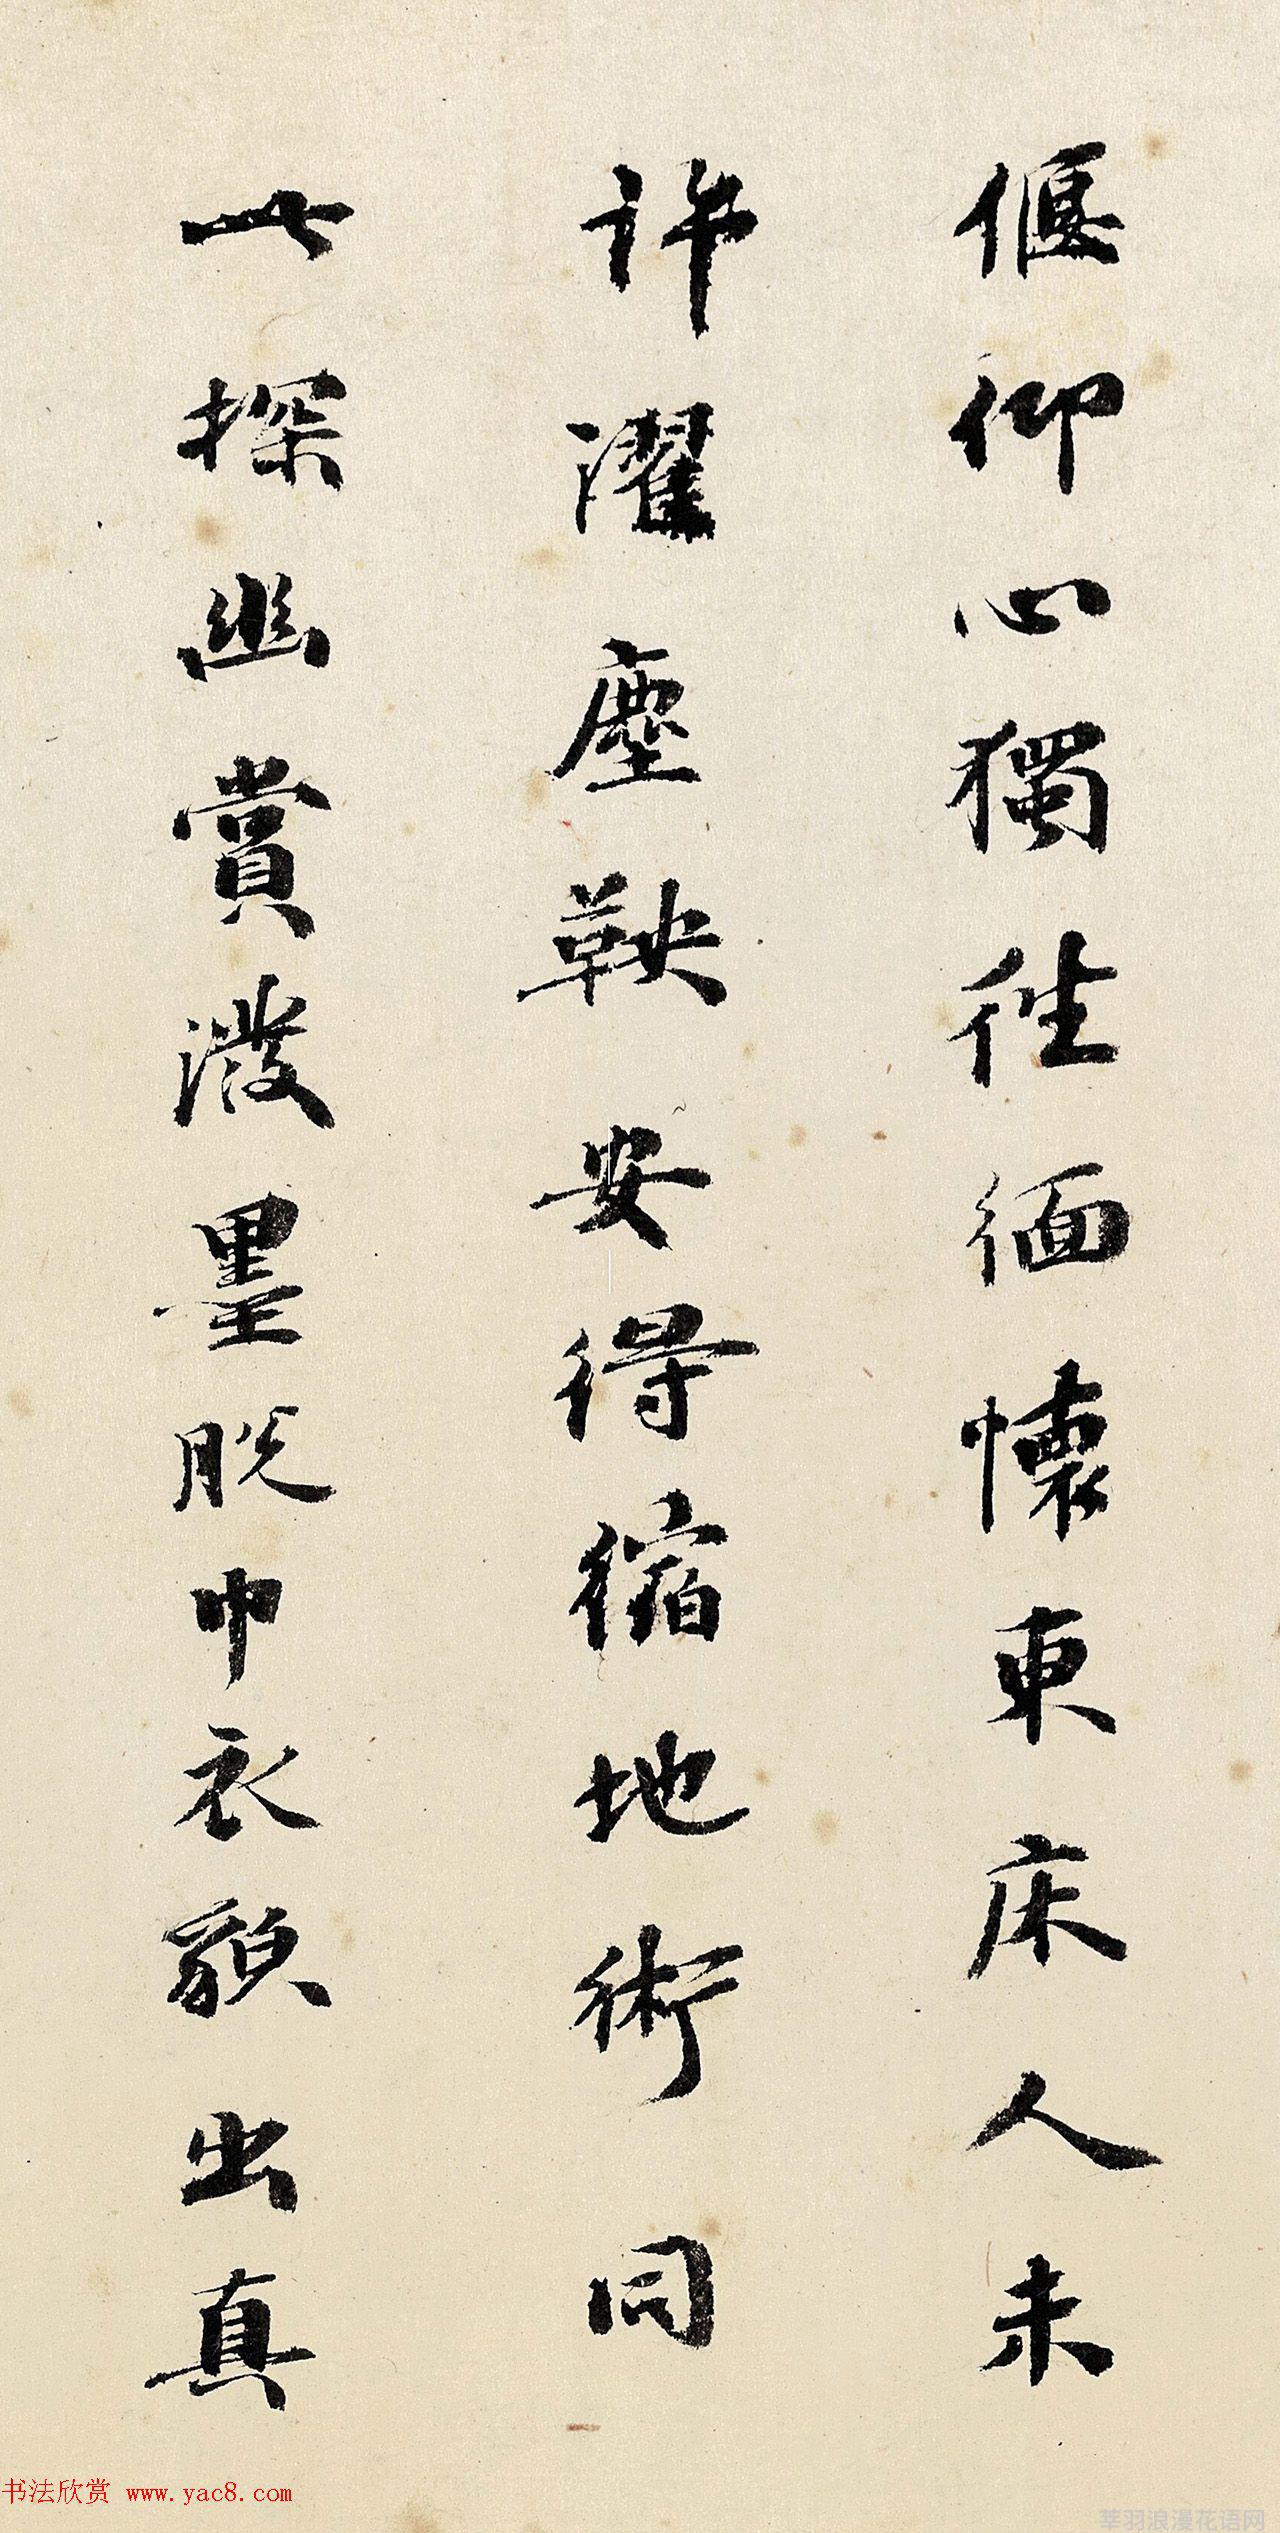 偃仰心獨往緬懷東床人未
許濯塵鞅安得縮地術同
此探幽賞潑墨脫巾衣貌出真
书法欣赏 www.yac8.com
莘羽浪漫花语网